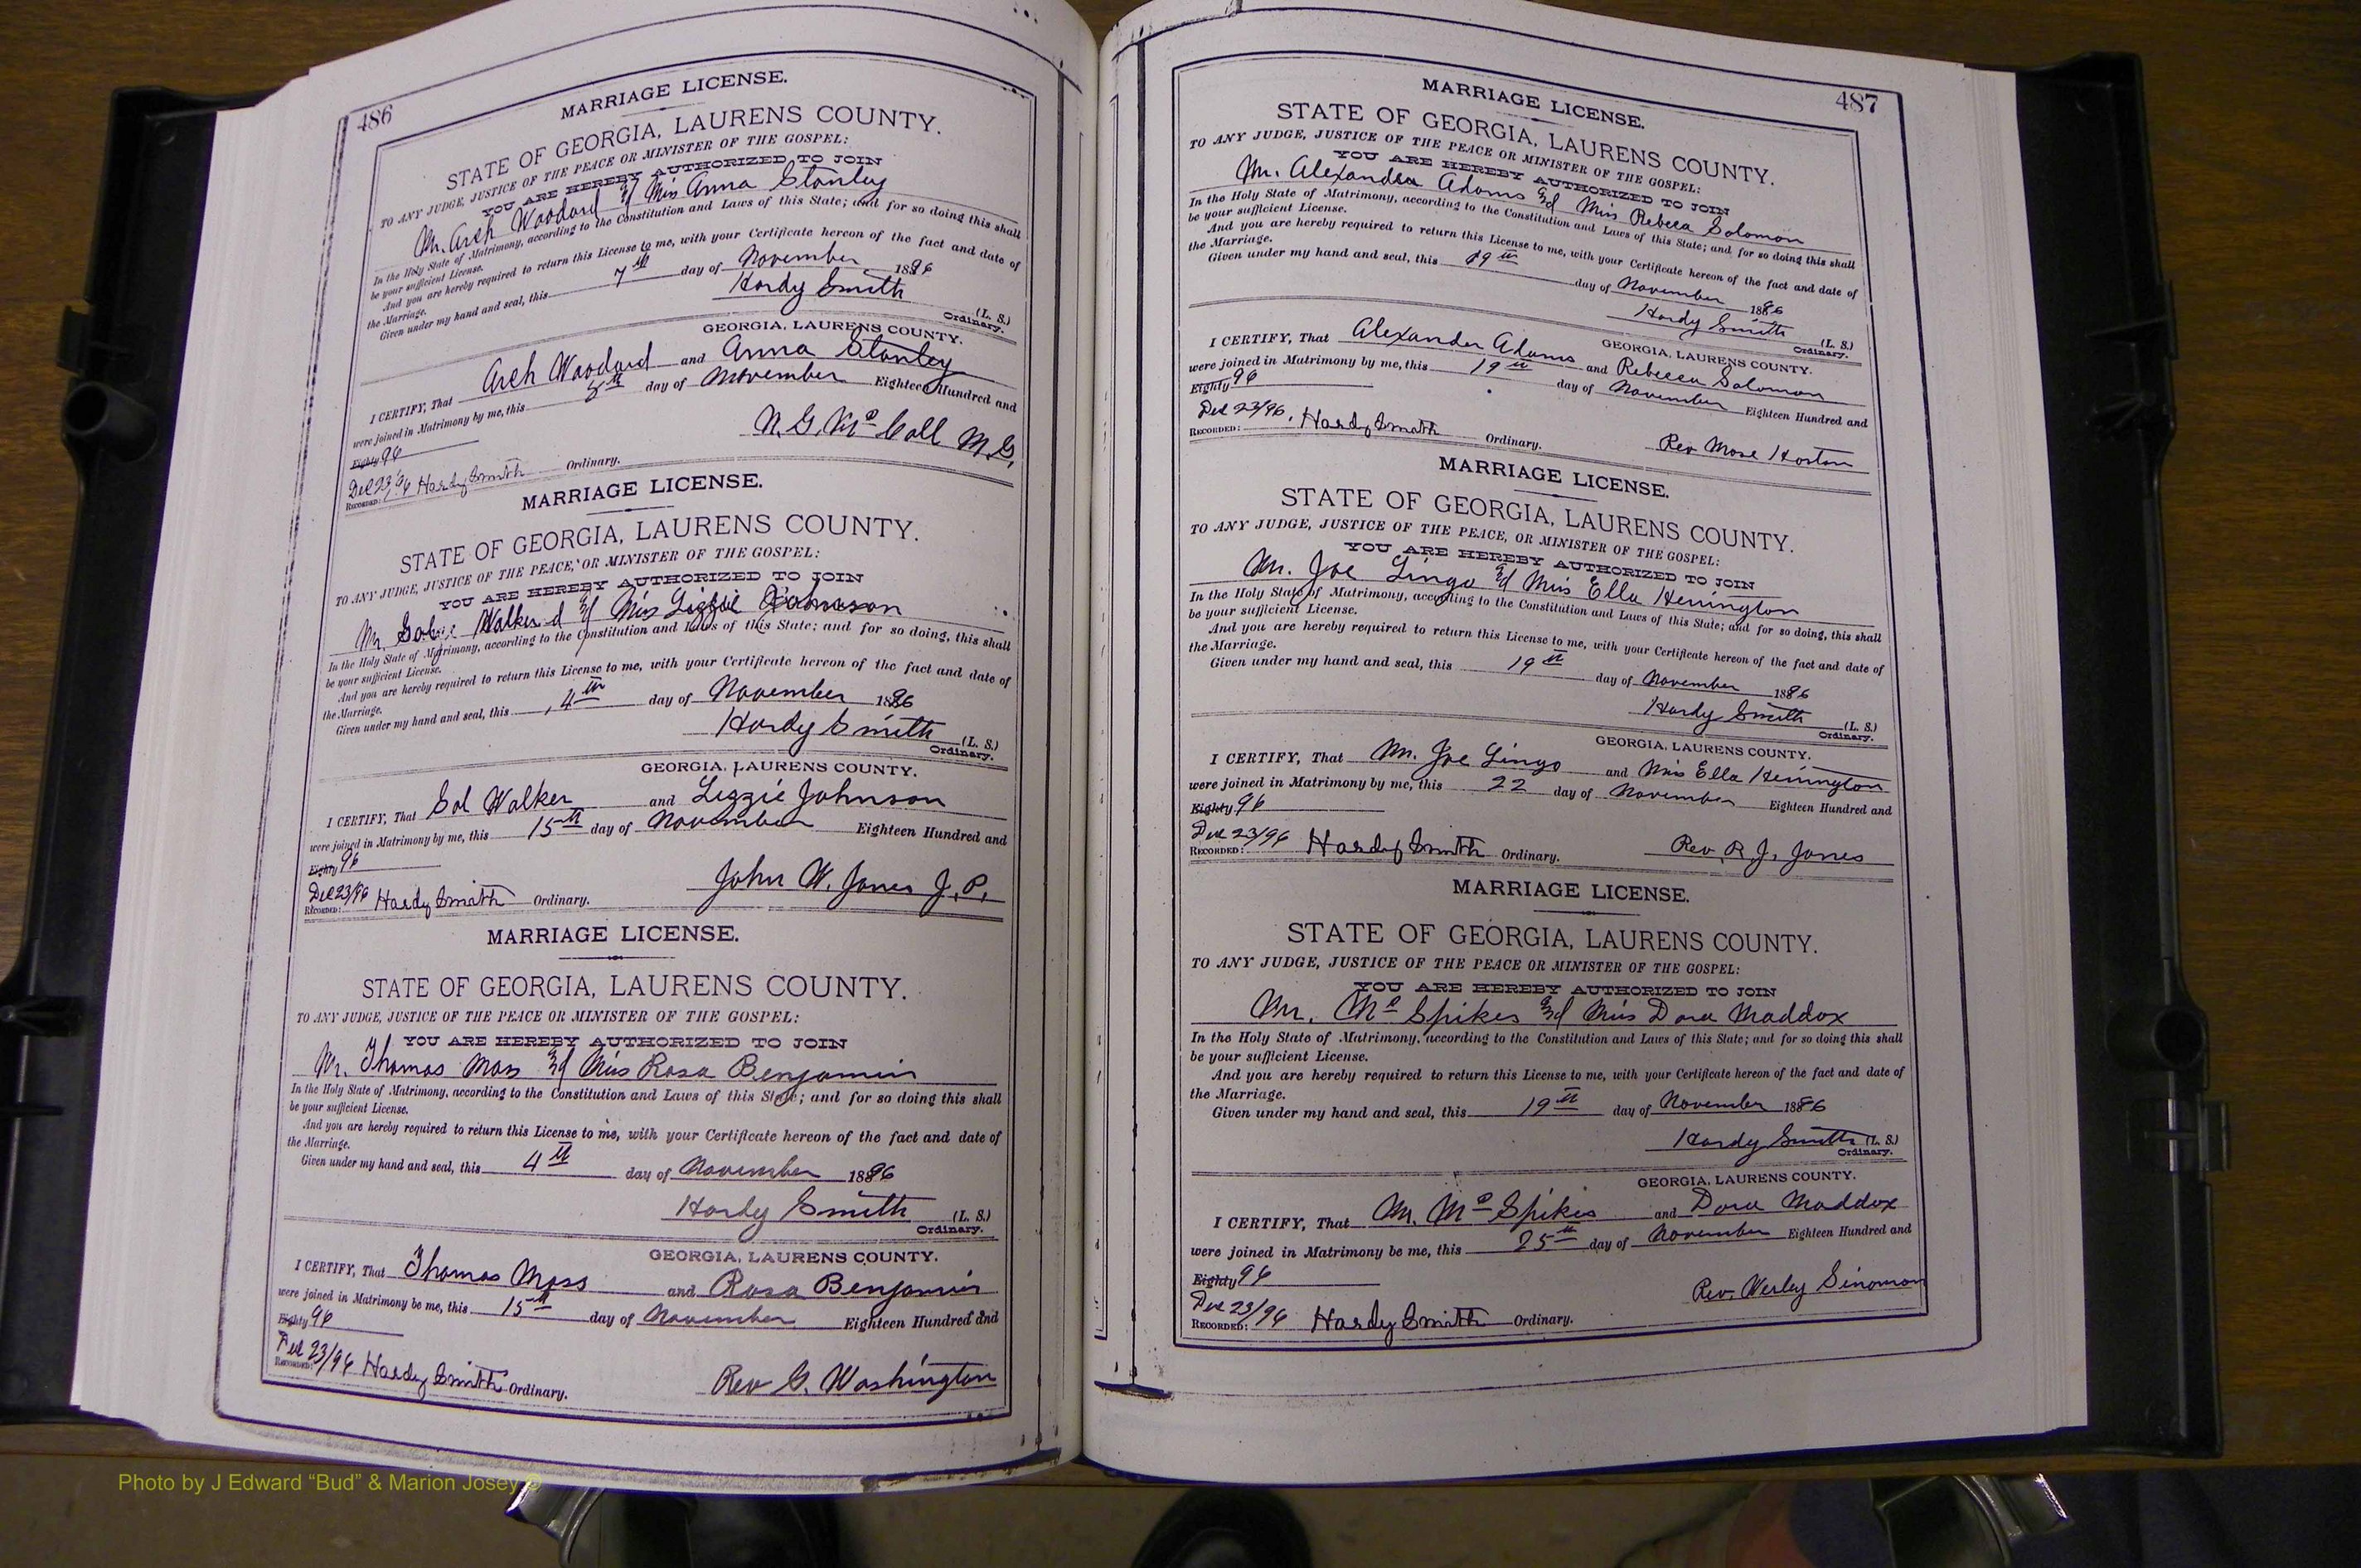 486
MARRIAGE LICENSE.
STATE OF GEORGIA, LAURENS COUNTY.
TO ANY JUDGE, JUSTICE OF THE PEACE OR MINISTER OF THE GOSPEL:
YOU ARE HEREBY AUTHORIZED TO JOIN
Mr. Arch Woodard & Miss Anna Stanley
In the Holy State of Matrimony, according to the Constitution and Laws of this State; and for so doing this shall
be your sufficient License.
And you are hereby required to return this License to me, with your Certificate hereon of the fact and date of
the Marriage.
Given under my hand and seal, this 7th day of November 1896
Hardy Smith (L. S.)
Ordinary.
GEORGIA, LAURENS COUNTY.
I CERTIFY, That Arch Woodard and Anna Stanley
were joined in Matrimony by me, this 8th day of November Eighteen Hundred and
Eighty 96
N. G. McCall M.G.
Dec 23/96 Hardy Smith Ordinary.
RECORDED:
MARRIAGE LICENSE.
STATE OF GEORGIA, LAURENS COUNTY.
TO ANY JUDGE, JUSTICE OF THE PEACE, OR MINISTER OF THE GOSPEL:
YOU ARE HEREBY AUTHORIZED TO JOIN
Mr. Walker & Miss Lizzie Johnson
In the Holy State of Matrimony, according to the Constitution and Laws of this State; and for so doing, this shall
be your sufficient License.
And you are hereby required to return this License to me, with your Certificate hereon of the fact and date of
the Marriage.
Given under my hand and seal, this 4th day of November 1896
Hardy Smith (L. S.)
Ordinary.
GEORGIA, LAURENS COUNTY.
I CERTIFY, That Sol Walker and Lizzie Johnson
were joined in Matrimony by me, this 15th day of November Eighteen Hundred and
Eighty 96
John W. Jones J.P.
Dec 23/96 Hardy Smith Ordinary.
RECORDED:
MARRIAGE LICENSE.
STATE OF GEORGIA, LAURENS COUNTY.
TO ANY JUDGE, JUSTICE OF THE PEACE OR MINISTER OF THE GOSPEL:
YOU ARE HEREBY AUTHORIZED TO JOIN
Mr. Thomas Moss & Miss Rosa Benjamin
In the Holy State of Matrimony, according to the Constitution and Laws of this State; and for so doing this shall
be your sufficient License.
And you are hereby required to return this License to me, with your Certificate hereon of the fact and date of
the Marriage.
Given under my hand and seal, this 4th day of November 1896
Hardy Smith (L. S.)
Ordinary.
GEORGIA, LAURENS COUNTY.
I CERTIFY, That Thomas Moss and Rosa Benjamin
were joined in Matrimony be me, this 15th day of November Eighteen Hundred and
Eighty 96
Dec 23/96 Hardy Smith Ordinary.
RECORDED:
Rev G. Washington
487
MARRIAGE LICENSE.
STATE OF GEORGIA, LAURENS COUNTY.
TO ANY JUDGE, JUSTICE OF THE PEACE OR MINISTER OF THE GOSPEL:
YOU ARE HEREBY AUTHORIZED TO JOIN
Mr. Alexander Adams & Miss Rebecca Solomon
In the Holy State of Matrimony, according to the Constitution and Laws of this State; and for so doing this shall
be your sufficient License.
And you are hereby required to return this License to me, with your Certificate hereon of the fact and date of
the Marriage.
Given under my hand and seal, this 19th day of November 1896
Hardy Smith (L. S.)
Ordinary.
GEORGIA, LAURENS COUNTY.
I CERTIFY, That Alexander Adams and Rebecca Solomon
were joined in Matrimony by me, this 19th day of November Eighteen Hundred and
Eighty 96
Dec 23/96. Hardy Smith Ordinary.
RECORDED:
Rev Mose Horton
MARRIAGE LICENSE.
STATE OF GEORGIA, LAURENS COUNTY.
TO ANY JUDGE, JUSTICE OF THE PEACE, OR MINISTER OF THE GOSPEL:
YOU ARE HEREBY AUTHORIZED TO JOIN
Mr. Joe Lingo & Miss Ella Herrington
In the Holy State of Matrimony, according to the Constitution and Laws of this State; and for so doing, this shall
be your sufficient License.
And you are hereby required to return this License to me, with your Certificate hereon of the fact and date of
the Marriage.
Given under my hand and seal, this 19th day of November 1896
Hardy Smith (L. S.)
Ordinary.
GEORGIA, LAURENS COUNTY.
I CERTIFY, That Mr. Joe Lingo and Miss Ella Herrington
were joined in Matrimony by me, this 22 day of November Eighteen Hundred and
Eighty 96
Dec 23/96 Hardy Smith Ordinary.
RECORDED:
Rev. R. J. Jones
MARRIAGE LICENSE.
STATE OF GEORGIA, LAURENS COUNTY.
TO ANY JUDGE, JUSTICE OF THE PEACE OR MINISTER OF THE GOSPEL:
YOU ARE HEREBY AUTHORIZED TO JOIN
Mr. Mc Spikes & Miss Dora Maddox
In the Holy State of Matrimony, according to the Constitution and Laws of this State; and for so doing this shall
be your sufficient License.
And you are hereby required to return this License to me, with your Certificate hereon of the fact and date of
the Marriage.
Given under my hand and seal, this 19th day of November 1896
Hardy Smith (L. S.)
Ordinary.
GEORGIA, LAURENS COUNTY.
I CERTIFY, That Mr. Mc Spikes and Dora Maddox
were joined in Matrimony be me, this 25th day of November Eighteen Hundred and
Eighty 96
Rev. Wesley
Dec 23/96 Hardy Smith Ordinary.
RECORDED:
Photo by J Edward “Bud” & Marion Josey ©